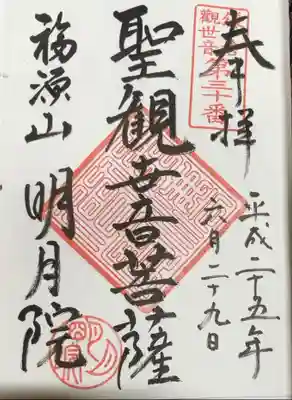 奉拝
観世音第三十番
平成二十五年
六月二十九日
聖観世音菩薩
福源山 明月院